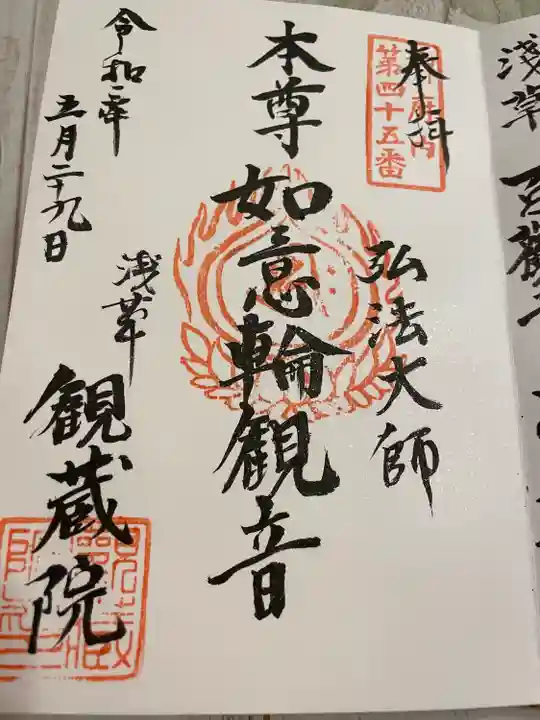 淺草
奉拝
府内
第四十五番
弘法大師
本尊如意輪観音
令和
五月二十九日
浅草
観蔵院